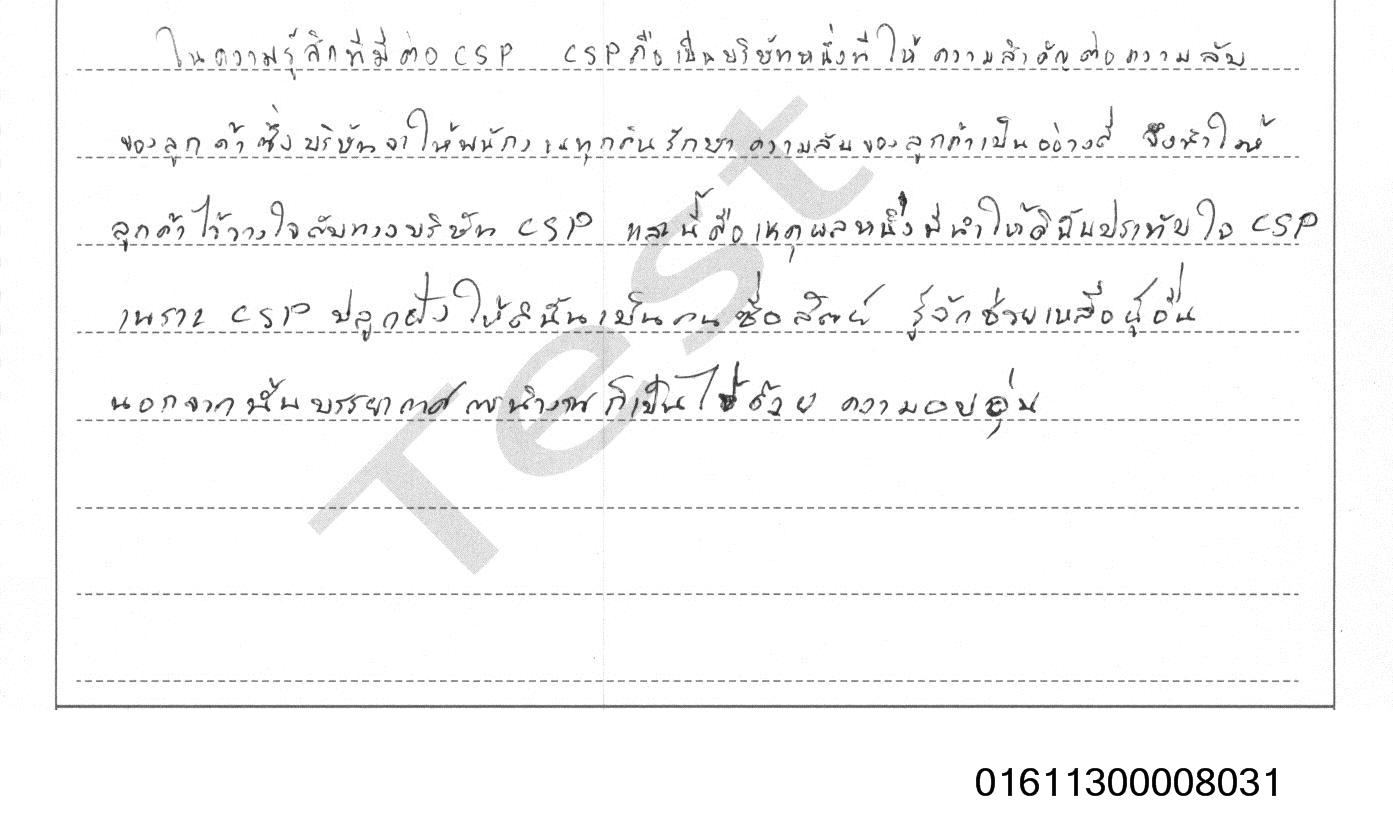 ในความรู้สึกที่มีต่อ CSP CSP ถือเป็นบริษัทหนึ่งที่ให้ความสำคัญต่อความลับ
ของลูกค้าซึ่งบริษัทจะให้พนักงานทุกคนรักษาความลับของลูกค้าเป็นอย่างดี จึงทำให้
ลูกค้าไว้วางใจกับทางบริษัท CSP และนี้คือเหตุผลหนึ่งที่ทำให้ดิฉันประทับใจ CSP
เพราะ CSP ปลูกฝังให้ดิฉันเป็นคนซื่อสัตย์ รู้จักช่วยเหลือผู้อื่น
นอกจากนั้นบรรยากาศการทำงานก็เป็นไปด้วย ความอบอุ่น
Test
01611300008031